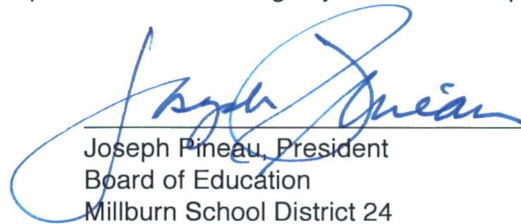 Joseph Pineau
Joseph Pineau, President
Board of Education
Millburn School District 24